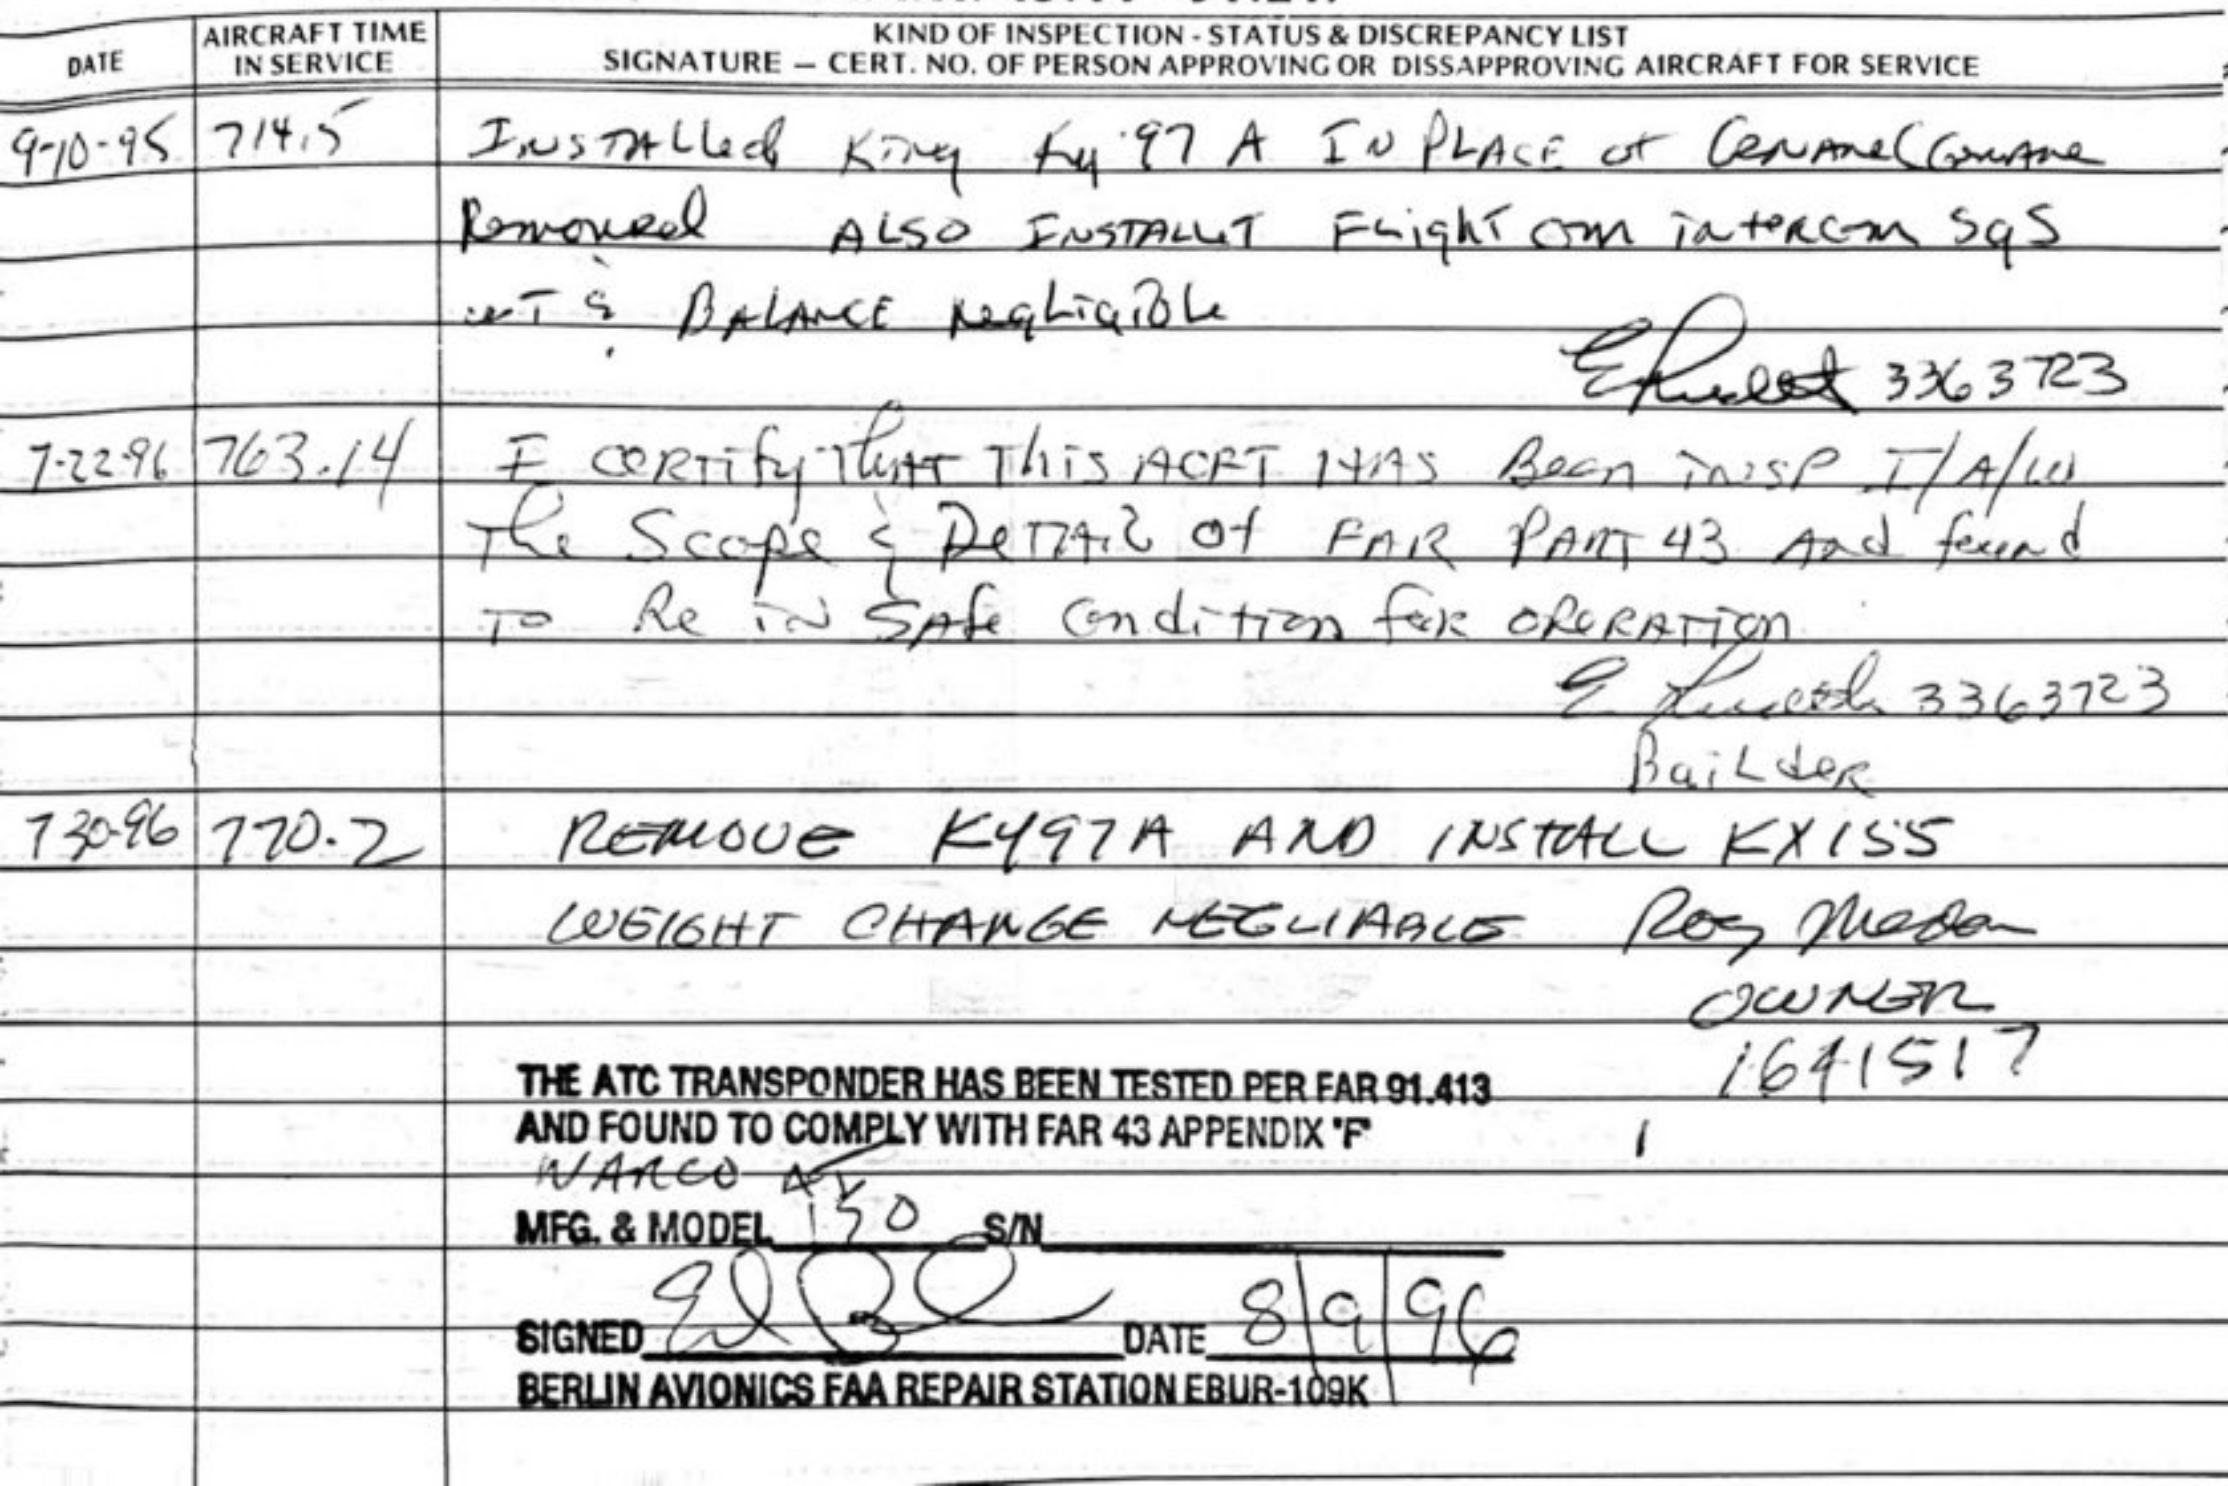 DATE
AIRCRAFT TIME IN SERVICE
KIND OF INSPECTION - STATUS & DISCREPANCY LIST
SIGNATURE — CERT. NO. OF PERSON APPROVING OR DISSAPPROVING AIRCRAFT FOR SERVICE
9-10-95 714.5 INSTALLed King Ky 97 A IN PLACE of
Removed ALSO INSTALLET Flight com intercom
WT & BALANCE negligible
3363723
7-22-96 763.14 I CERTify That This ACFT HAS Been insp I/A/W
The Scope & DETAIL of FAR PART 43 And found
To Be in SAfe Condition for OPERATION
3363723
BuiLdeR
7 30-96 770.2 REMOVE KY97A AND INSTALL KX155
WEIGHT CHANGE NEGLIABLE Roy
OWNER
1641517
THE ATC TRANSPONDER HAS BEEN TESTED PER FAR 91.413
AND FOUND TO COMPLY WITH FAR 43 APPENDIX "F"
NARCO AT
MFG. & MODEL 150 S/N
SIGNED DATE 8/9/96
BERLIN AVIONICS FAA REPAIR STATION EBUR-109K